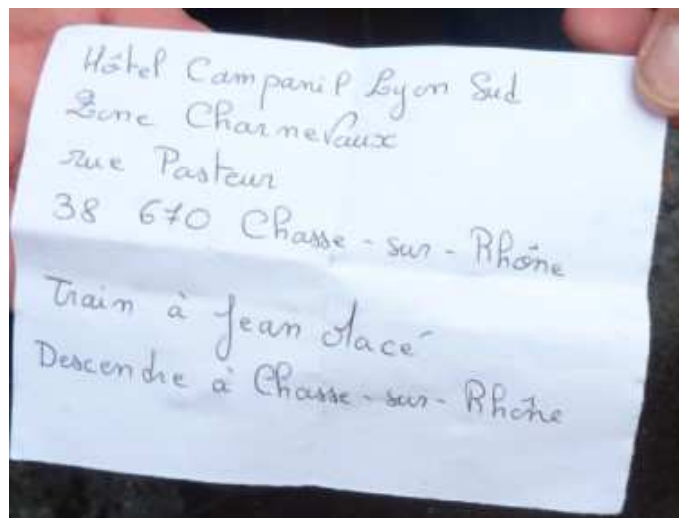 Hôtel Campanil Lyon Sud
Zone Charnevaux
rue Pasteur
38 670 Chasse-sur-Rhône
Train à Jean Macé
Descendre à Chasse-sur-Rhône